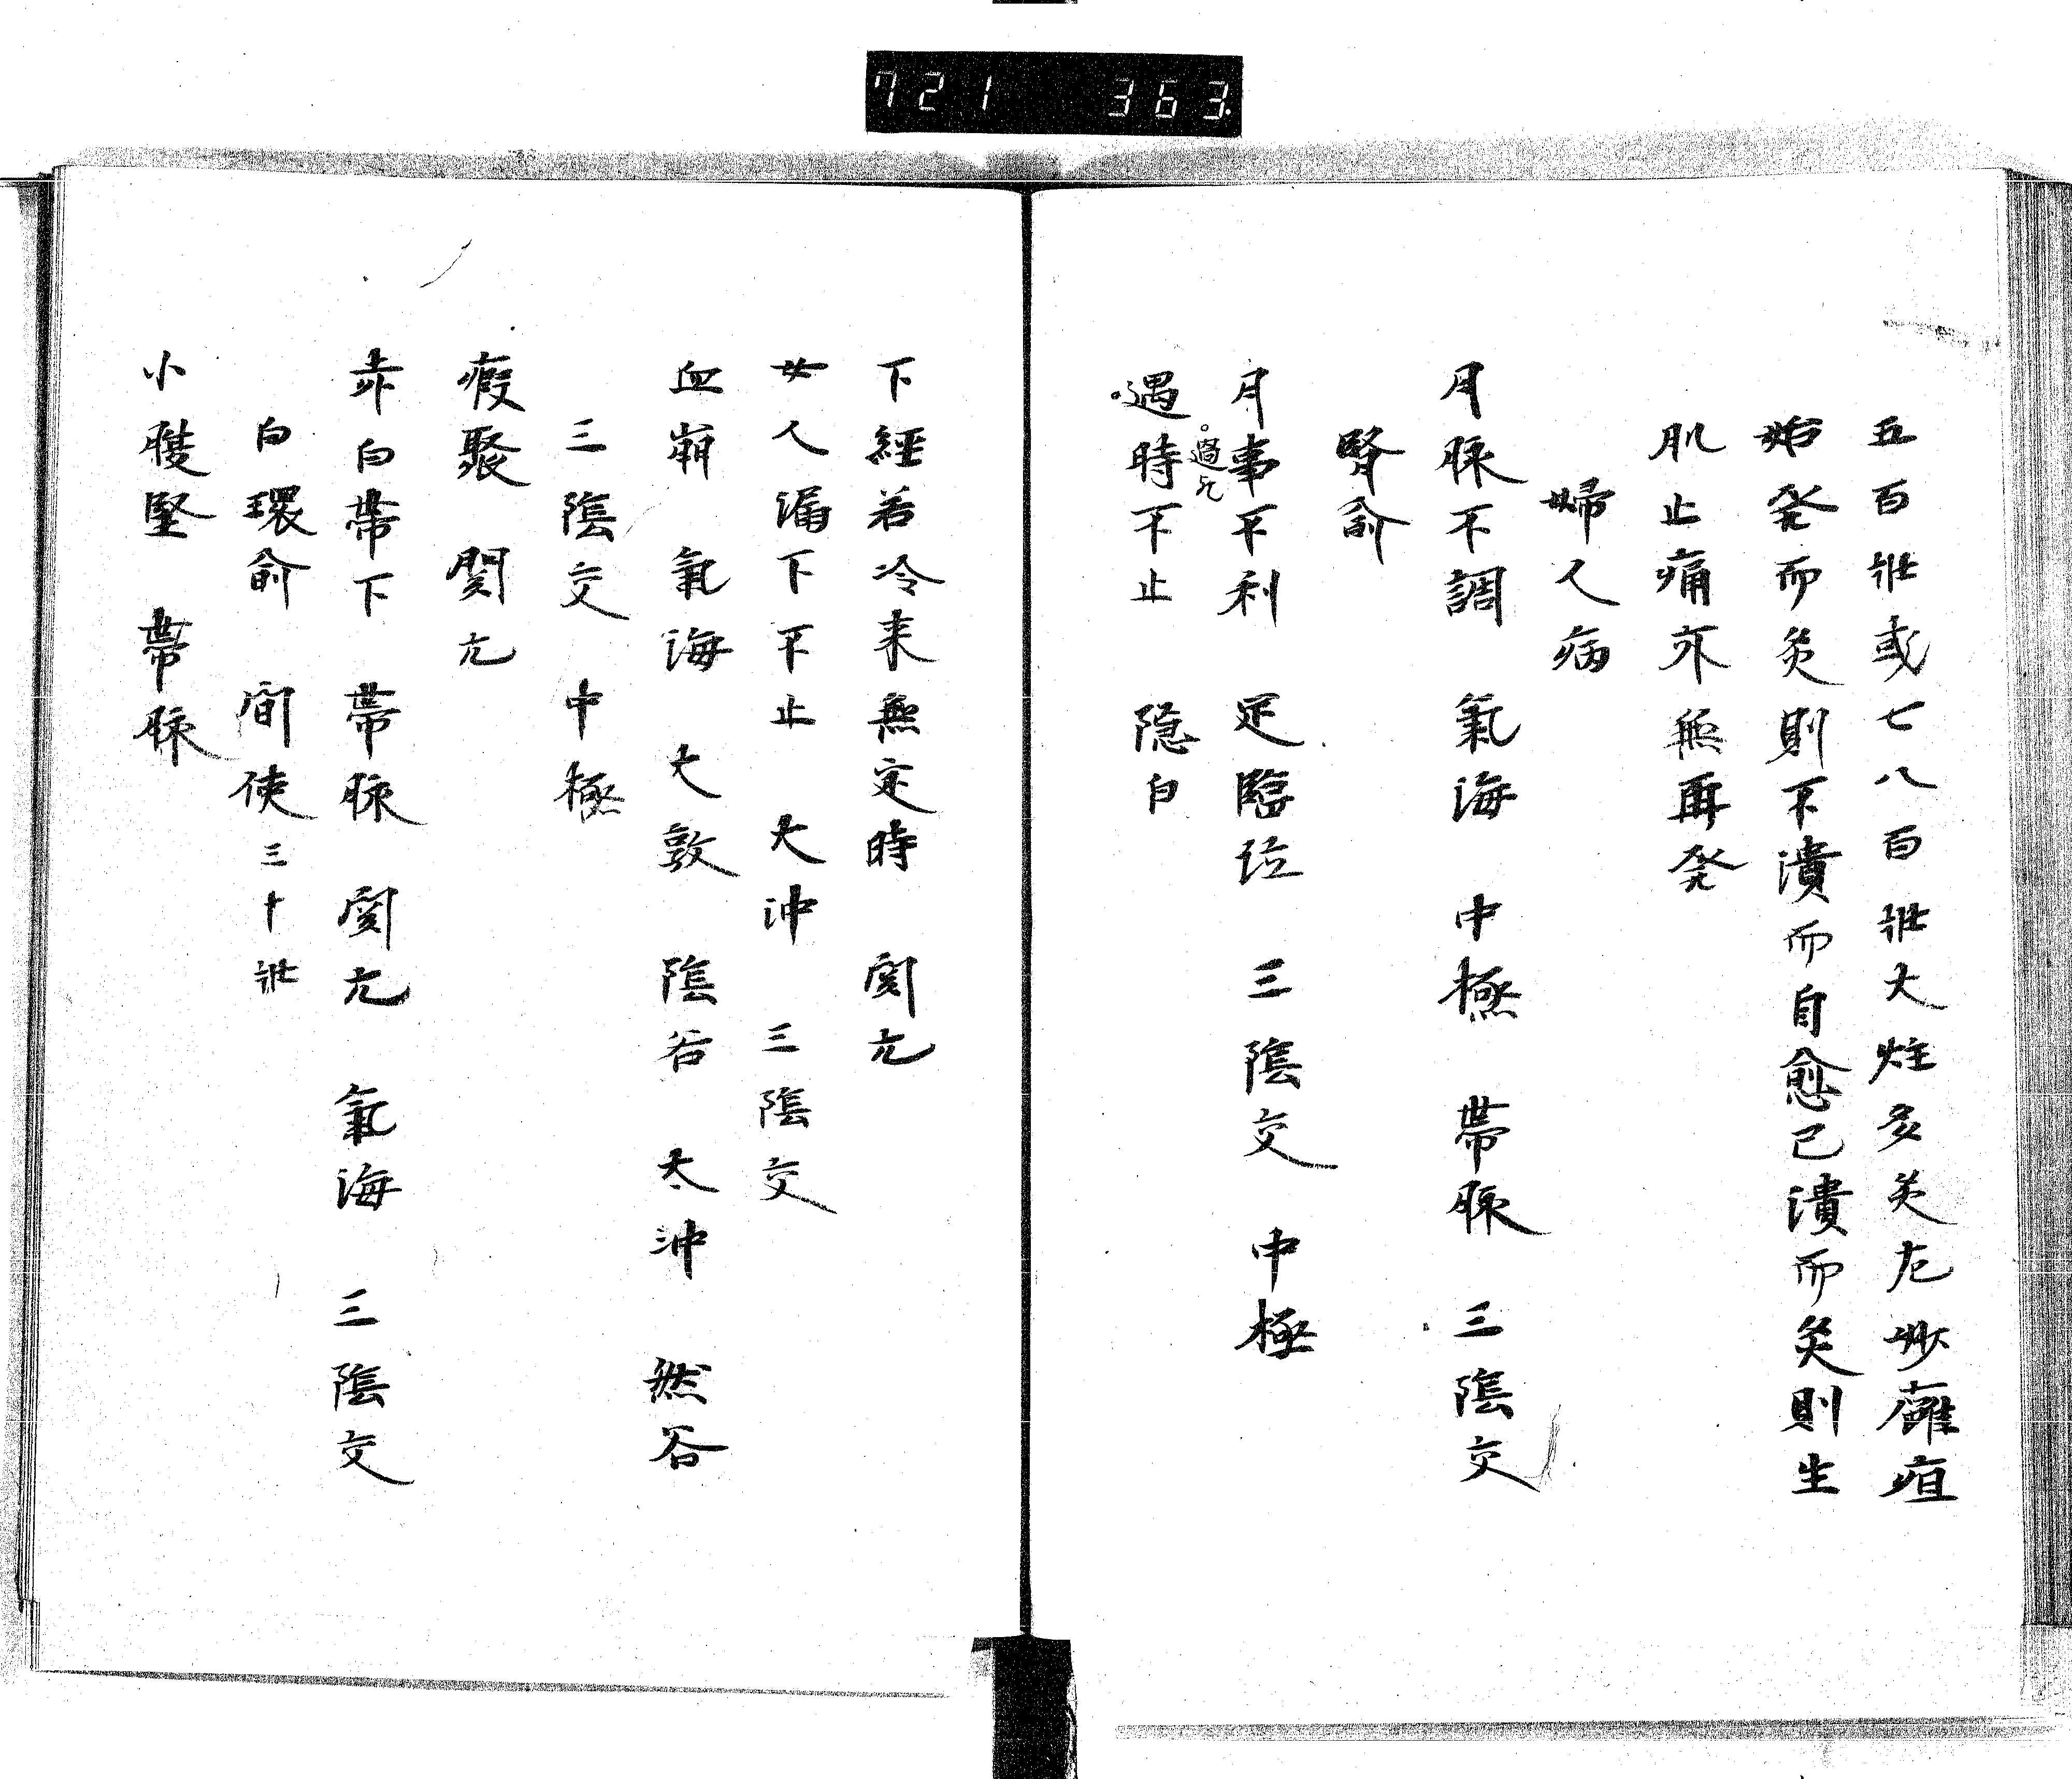 721 363
五百壯或七八百壯大炷多灸尤妙癰疽
始発而灸則不潰而自愈已潰而灸則生
肌止痛亦無再発
婦人病
月脉不調 氣海 中極 帯脉 三陰交
腎俞
月事不利 足臨泣 三陰交 中極
過欤
遇時不止 隠白
下經若冷来無定時 関元
女人漏下不止 大冲 三陰交
血崩 氣海 大敦 陰谷 太冲 然谷
三陰交 中極
瘕聚 関元
赤白帯下 帯脉 関元 氣海 三陰交
白環俞 間使 三十壯
小腹堅 帯脉